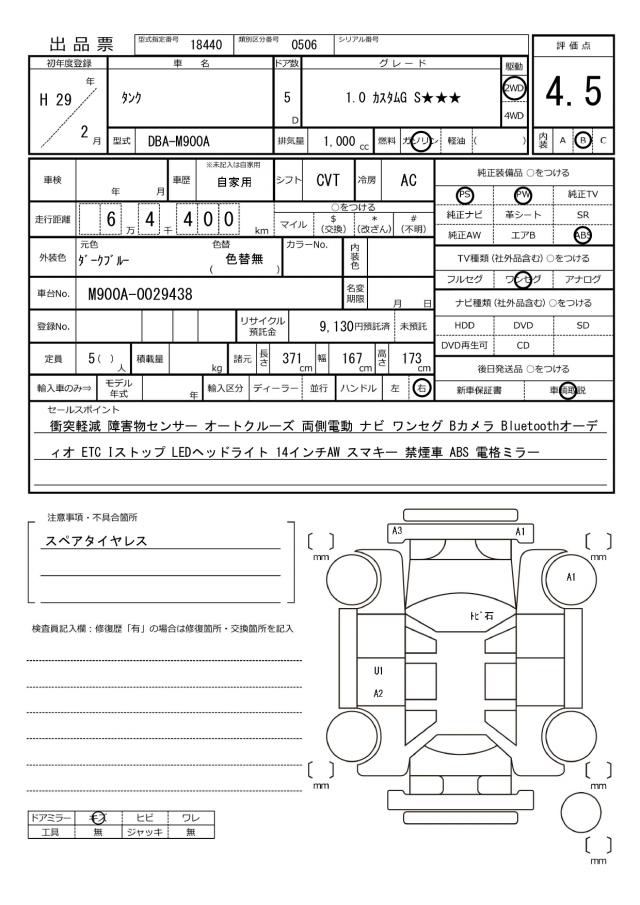 出品票
型式指定番号 18440 類別区分番号 0506 シリアル番号
評価点
4.5
内装 A B C
初年度登録 車名 ドア数 グレード 駆動
H 29 年 2 月
タンク
5 D
1.0 カスタムG S★★★
2WD
4WD
型式 DBA-M900A 排気量 1,000 cc 燃料 ガソリン 軽油 ( )
車検 年 月 車歴 ※未記入は自家用 自家用 シフト CVT 冷房 AC
走行距離 6 万 4 千 4 0 0 km
○をつける
マイル $(交換) *(改ざん) #(不明)
外装色 元色 ダークブルー 色替 ( 色替無 ) カラーNo. 内装色
車台No. M900A-0029438 名変期限 月 日
登録No. リサイクル預託金 9,130円預託済 未預託
定員 5( )人 積載量 kg 諸元 長さ 371cm 幅 167cm 高さ 173cm
輸入車のみ⇒ モデル年式 年 輸入区分 ディーラー 並行 ハンドル 左 右
純正装備品 ○をつける
PS PW 純正TV
純正ナビ 革シート SR
純正AW エアB ABS
TV種類 (社外品含む) ○をつける
フルセグ ワンセグ アナログ
ナビ種類 (社外品含む) ○をつける
HDD DVD SD
DVD再生可 CD
後日発送品 ○をつける
新車保証書 車輌取説
セールスポイント
衝突軽減 障害物センサー オートクルーズ 両側電動 ナビ ワンセグ Bカメラ Bluetoothオーデ
ィオ ETC Iストップ LEDヘッドライト 14インチAW スマキー 禁煙車 ABS 電格ミラー
注意事項・不具合箇所
スペアタイヤレス
検査員記入欄：修復歴「有」の場合は修復箇所・交換箇所を記入
A3 A1
mm mm
A1
トビ石
U1
A2
mm mm
mm
ドアミラー キズ ヒビ ワレ
工具 無 ジャッキ 無